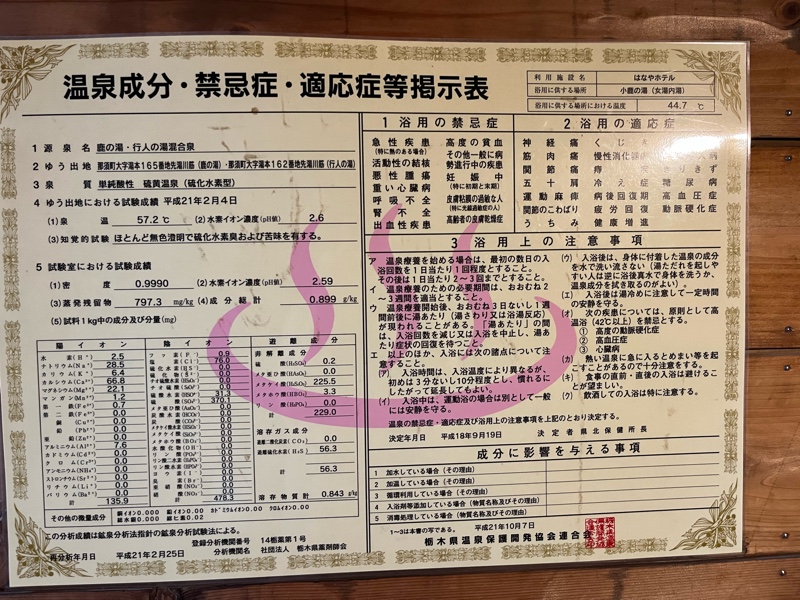 温泉成分・禁忌症・適応症等掲示表
利用施設名 はなやホテル
浴用に供する場所 小鹿の湯（女湯内湯）
浴用に供する場所における温度 44.7 ℃
1 源泉名 鹿の湯・行人の湯混合泉
2 ゆう出地 那須町大字湯本165番地先湯川筋（鹿の湯）・那須町大字湯本162番地先湯川筋（行人の湯）
3 泉質 単純酸性 硫黄温泉（硫化水素型）
4 ゆう出地における試験成績 平成21年2月4日
(1)泉温 57.2 ℃ (2)水素イオン濃度(pH値) 2.6
(3)知覚的試験 ほとんど無色澄明で硫化水素臭および苦味を有する。
5 試験室における試験成績
(1)密度 0.9990 (2)水素イオン濃度(pH値) 2.59
(3)蒸発残留物 797.3 mg/kg (4)成分総計 0.899 g/kg
(5)試料1kg中の成分及び分量(mg)
陽イオン
水素(H⁺) 2.5
ナトリウム(Na⁺) 28.5
カリウム(K⁺) 6.4
カルシウム(Ca²⁺) 66.8
マグネシウム(Mg²⁺) 22.1
マンガン(Mn²⁺) 1.2
第一鉄(Fe²⁺) 0.7
第二鉄(Fe³⁺) 0.0
銅(Cu²⁺) 0.0
鉛(Pb²⁺) 0.0
亜鉛(Zn²⁺) 0.0
アルミニウム(Al³⁺) 7.6
カドミウム(Cd²⁺) 0.0
クロム(Cr³⁺) 0.0
アンモニウム(NH₄⁺) 0.0
ストロンチウム(Sr²⁺) 0.0
リチウム(Li⁺) 0.0
バリウム(Ba²⁺) 0.0
計 135.9
陰イオン
フッ素(F⁻) 0.9
塩素(Cl⁻) 76.0
計 478.3
遊離成分
非解離成分
硫酸(H₂SO₄) 0.2
メタ亜ヒ酸(HAsO₂) 0.0
メタケイ酸(H₂SiO₃) 225.5
メタホウ酸(HBO₂) 3.3
リン酸(H₃PO₄) 0.0
計 229.0
溶存ガス成分
遊離二酸化炭素(CO₂) 0.0
遊離硫化水素(H₂S) 56.3
計 56.3
溶存物質計 0.843 g/kg
その他の微量成分 銅イオン0.000 鉛イオン0.00 カドミウムイオン0.00 クロムイオン0.00
総水銀0.000 総ヒ素0.02
この分析成績は鉱泉分析法指針の鉱泉分析試験法による。
再分析年月日 平成21年2月25日
登録分析機関番号 14栃薬第1号
分析機関名 社団法人 栃木県薬剤師会
1 浴用の禁忌症
急性疾患
(特に熱のある場合)
活動性の結核
悪性腫瘍
重い心臓病
呼吸不全
腎不全
出血性疾患
高度の貧血
その他一般に病
勢進行中の疾患
妊娠中
(特に初期と末期)
皮膚粘膜の過敏な人
(特に光線過敏症の人)
高齢者の皮膚乾燥症
2 浴用の適応症
神経痛
筋肉痛
関節痛
五十肩
運動麻痺
関節のこわばり
うちみ
くじき
慢性消化器
痔
冷え症
病後回復期
疲労回復
健康増進
きりきず
糖尿病
高血圧症
動脈硬化症
3 浴用上の注意事項
ア 温泉療養を始める場合は、最初の数日の入
浴回数を1日当たり1回程度とすること。
その後は1日当たり2～3回までとすること。
イ 温泉療養のための必要期間は、おおむね2
～3週間を適当とすること。
ウ 温泉療養開始後、おおむね3日ないし1週
間前後に湯あたり（湯さわり又は浴湯反応）
が現われることがある。「湯あたり」の間
は、入浴回数を減じ又は入浴を中止し、湯あ
たり症状の回復を待つこと。
エ 以上のほか、入浴には次の諸点について注
意すること。
(ア) 入浴時間は、入浴温度により異なるが、
初めは3分ないし10分程度とし、慣れるに
したがって延長してもよい。
(イ) 入浴中は、運動浴の場合は別として一般
には安静を守る。
(ウ) 入浴後は、身体に付着した温泉の成分
を水で洗い流さない（湯ただれを起しや
すい人は逆に浴後真水で身体を洗うか、
温泉成分を拭き取るのがよい）。
(エ) 入浴後は湯冷めに注意して一定時間
の安静を守る。
(オ) 次の疾患については、原則として高
温浴（42℃以上）を禁忌とする。
① 高度の動脈硬化症
② 高血圧症
③ 心臓病
(カ) 熱い温泉に急に入るとめまい等を起
こすことがあるので十分注意をする。
(キ) 食事の直前・直後の入浴は避けるこ
とが望ましい。
(ク) 飲酒しての入浴は特に注意する。
温泉の禁忌症・適応症及び浴用上の注意事項を上記のとおり決定する。
決定年月日 平成18年9月19日 決定者 県北保健所長
成分に影響を与える事項
1 加水している場合（その理由）
2 加温している場合（その理由）
3 循環利用している場合（その理由）
4 入浴剤等添加している場合（物質名称及びその理由）
5 消毒処理している場合（物質名称及びその理由）
1～3は本書の写である。 平成21年10月7日
栃木県温泉保護開発協会連合会